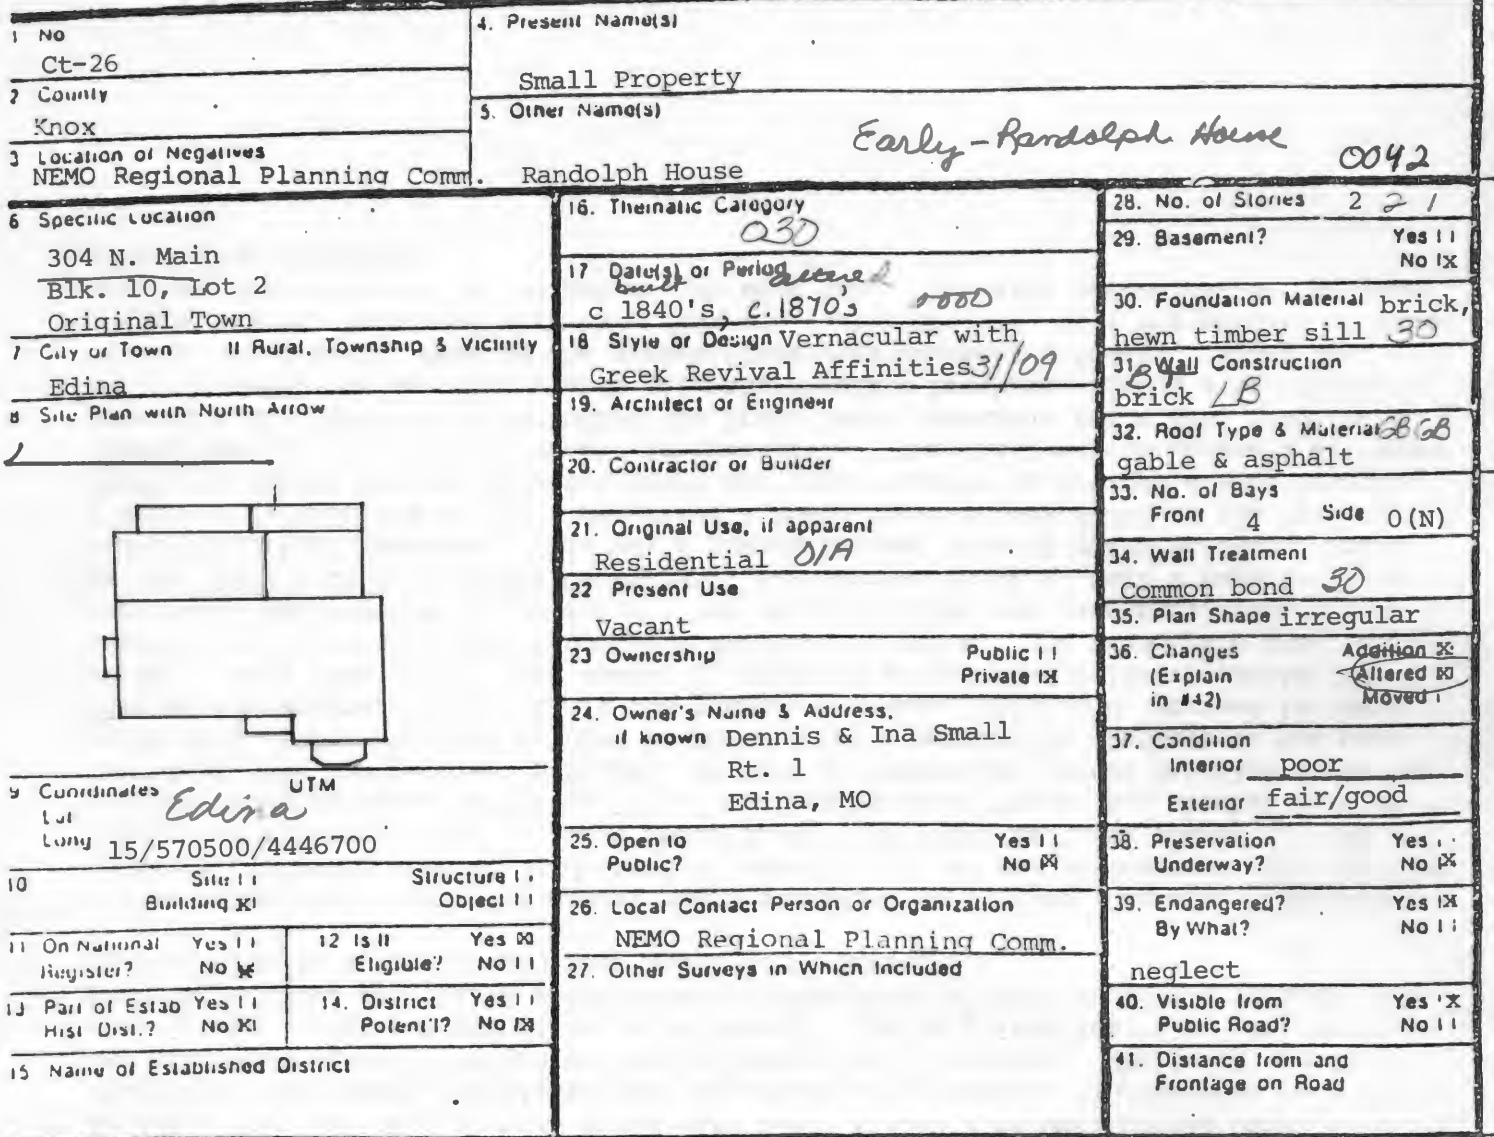 1 No
Ct-26
2 County
Knox
3 Location of Negatives
NEMO Regional Planning Comm.
4. Present Name(s)
Small Property
5. Other Name(s)
Early-Randolph House
Randolph House
0042
6 Specific Location
304 N. Main
Blk. 10, Lot 2
Original Town
7 City or Town If Rural, Township & Vicinity
Edina
8 Site Plan with North Arrow
9 Coordinates UTM
Lat
Long
Edina
15/570500/4446700
10 Site Structure
Building X Object
11 On National Yes
Register? No X
12 Is It Yes X
Eligible? No
13 Part of Estab Yes
Hist Dist.? No X
14. District Yes
Potent'l? No X
15 Name of Established District
16. Thematic Category
030
17 Date(s) or Period
built altered
c 1840's, c.1870s
18 Style or Design Vernacular with
Greek Revival Affinities 31/09
19. Architect or Engineer
20. Contractor or Builder
21. Original Use, if apparent
Residential 01A
22 Present Use
Vacant
23 Ownership Public
Private X
24. Owner's Name & Address,
if known Dennis & Ina Small
Rt. 1
Edina, MO
25. Open to Yes
Public? No X
26. Local Contact Person or Organization
NEMO Regional Planning Comm.
27. Other Surveys in Which Included
28. No. of Stories 2 2 1
29. Basement? Yes
No X
30. Foundation Material brick,
hewn timber sill 30
31. Wall Construction
brick
32. Roof Type & Material GB GB
gable & asphalt
33. No. of Bays
Front 4 Side 0(N)
34. Wall Treatment
Common bond 30
35. Plan Shape irregular
36. Changes Addition X
(Explain Altered X
in #42) Moved
37. Condition
Interior poor
Exterior fair/good
38. Preservation Yes
Underway? No X
39. Endangered? Yes X
By What? No
neglect
40. Visible from Yes X
Public Road? No
41. Distance from and
Frontage on Road